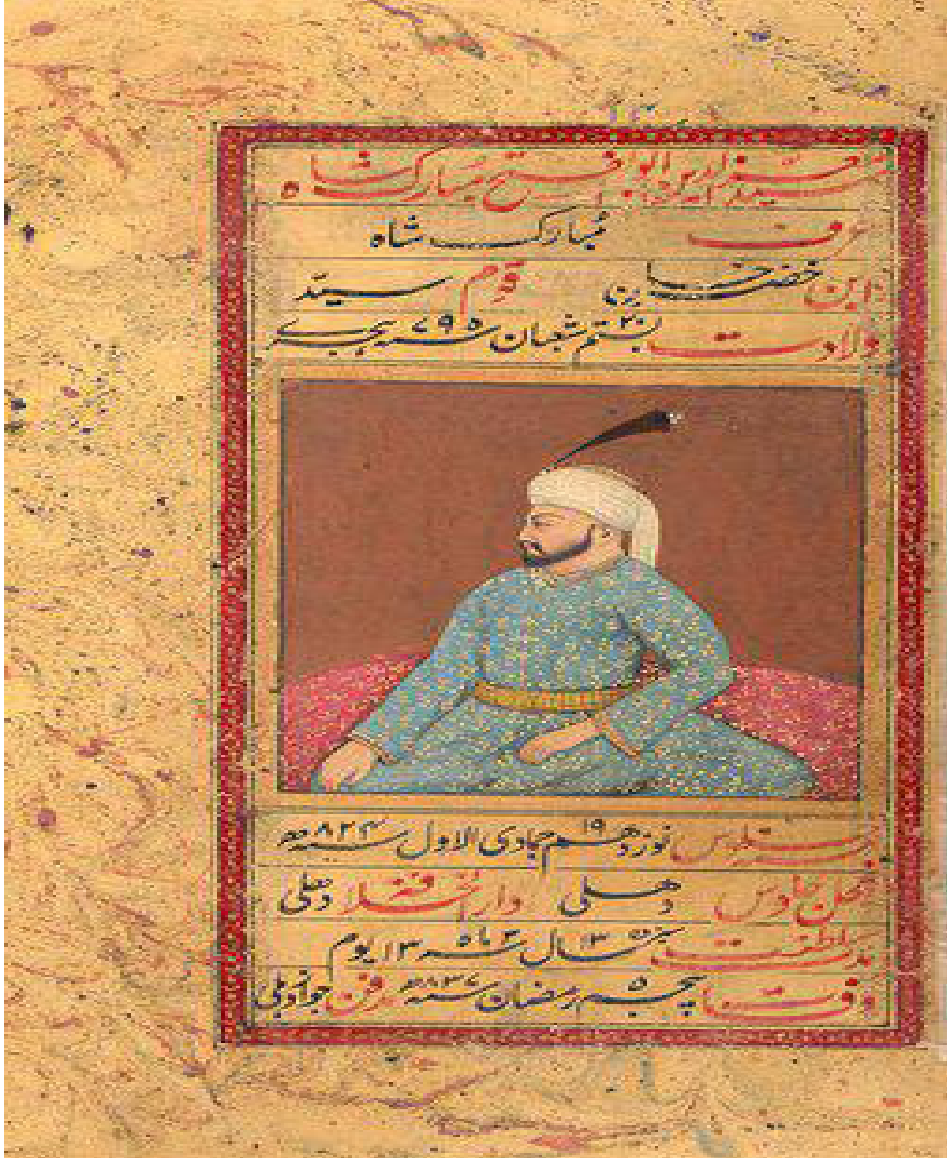 شبیه معز الدین ابو الفتح مبارک شاه
عرف مبارک شاه
ابن خضر خان قوم سید
ولادت بستم ۲۰ شعبان سنه ۷۹۵ ہجری
جلوس نوزدهم ۱۹ جمادی الاول سنه ۸۲۴
محل جلوس دهلی دار الخلافت دهلی
مدت سلطنت ۱۳ سال ۳ ماه ۱۳ یوم
وفات پنجم ۵ رمضان سنه ۸۳۷ مدفن جوار دہلی